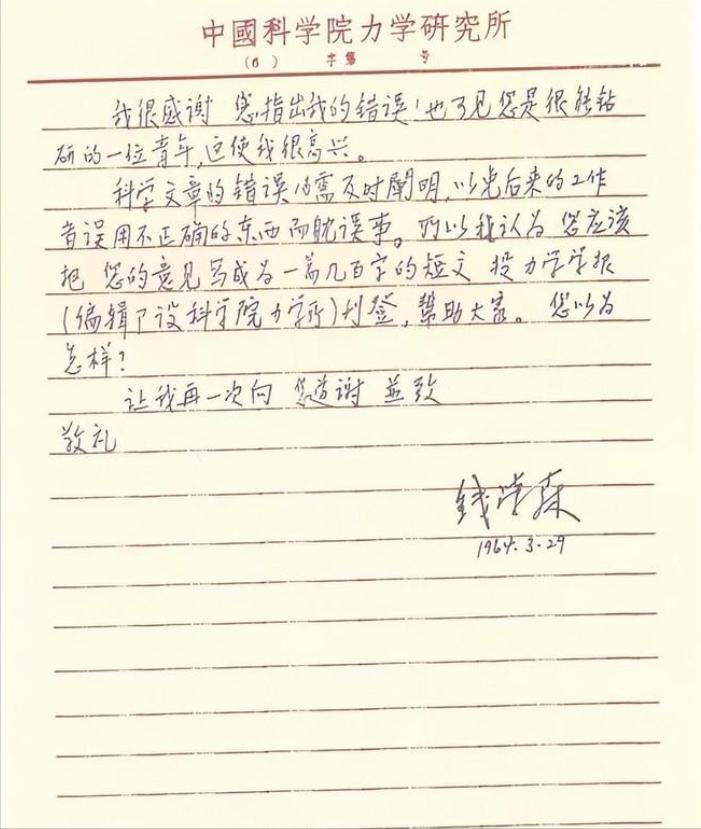 中國科学院力学研究所
(0) 字第 号
我很感谢 您指出我的错误！也可见您是很能钻
研的一位青年，这使我很高兴。
科学文章的错误必需及时阐明，以免后来的工作
者误用不正确的东西而耽误事。所以我认为 您应该
把 您的意见写成为一篇几百字的短文 投力学学报
(编辑部设科学院力学所)刊登，幫助大家。 您以为
怎样？
让我再一次向 您道谢 並致
敬礼
钱学森
1964.3.29